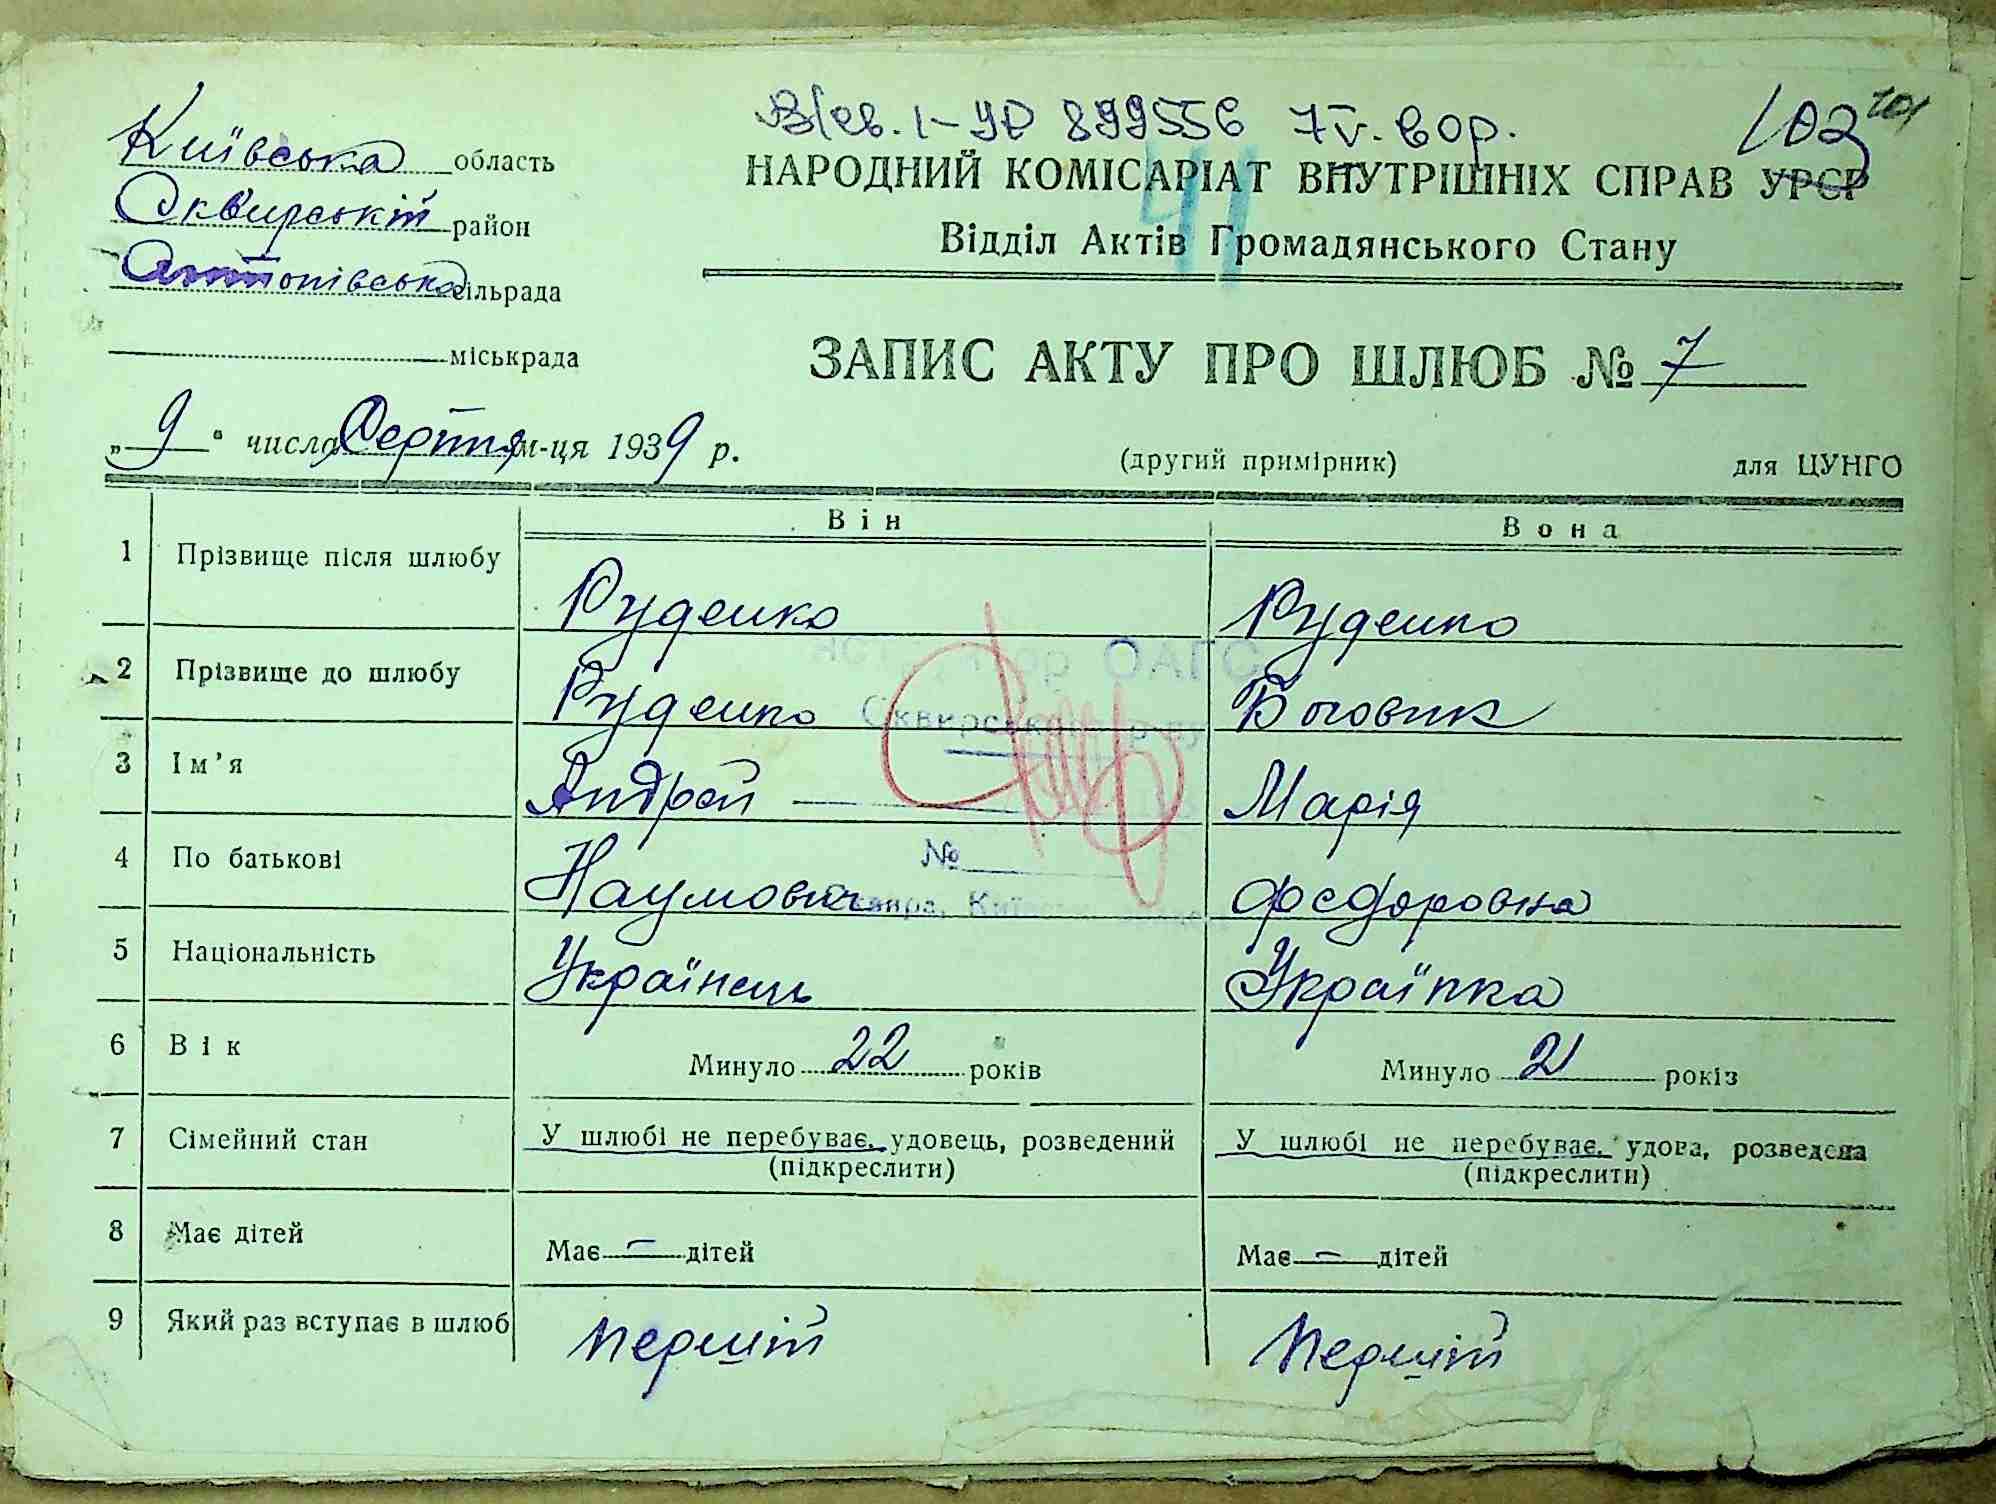 Київська область
Сквирській район
Антонівська сільрада
міськрада
В/св. І-УР 899556 7V. вор.
103 101
41
НАРОДНИЙ КОМІСАРІАТ ВНУТРІШНІХ СПРАВ УРСР
Відділ Актів Громадянського Стану
ЗАПИС АКТУ ПРО ШЛЮБ № 7
„ 9 “ числа Серпня м-ця 1939 р.
(другий примірник) для ЦУНГО
Він Вона
1 Прізвище після шлюбу Руденко Руденко
2 Прізвище до шлюбу Руденко Боговик
3 Ім’я Андрей Марія
4 По батькові Наумович Федоровна
5 Національність Українець Українка
6 Вік Минуло 22 років Минуло 21 років
7 Сімейний стан У шлюбі не перебуває, удовець, розведений У шлюбі не перебуває, удова, розведена
(підкреслити) (підкреслити)
8 Має дітей Має — дітей Має — дітей
9 Який раз вступає в шлюб перший перший
ОАГС
Сквирськ
№